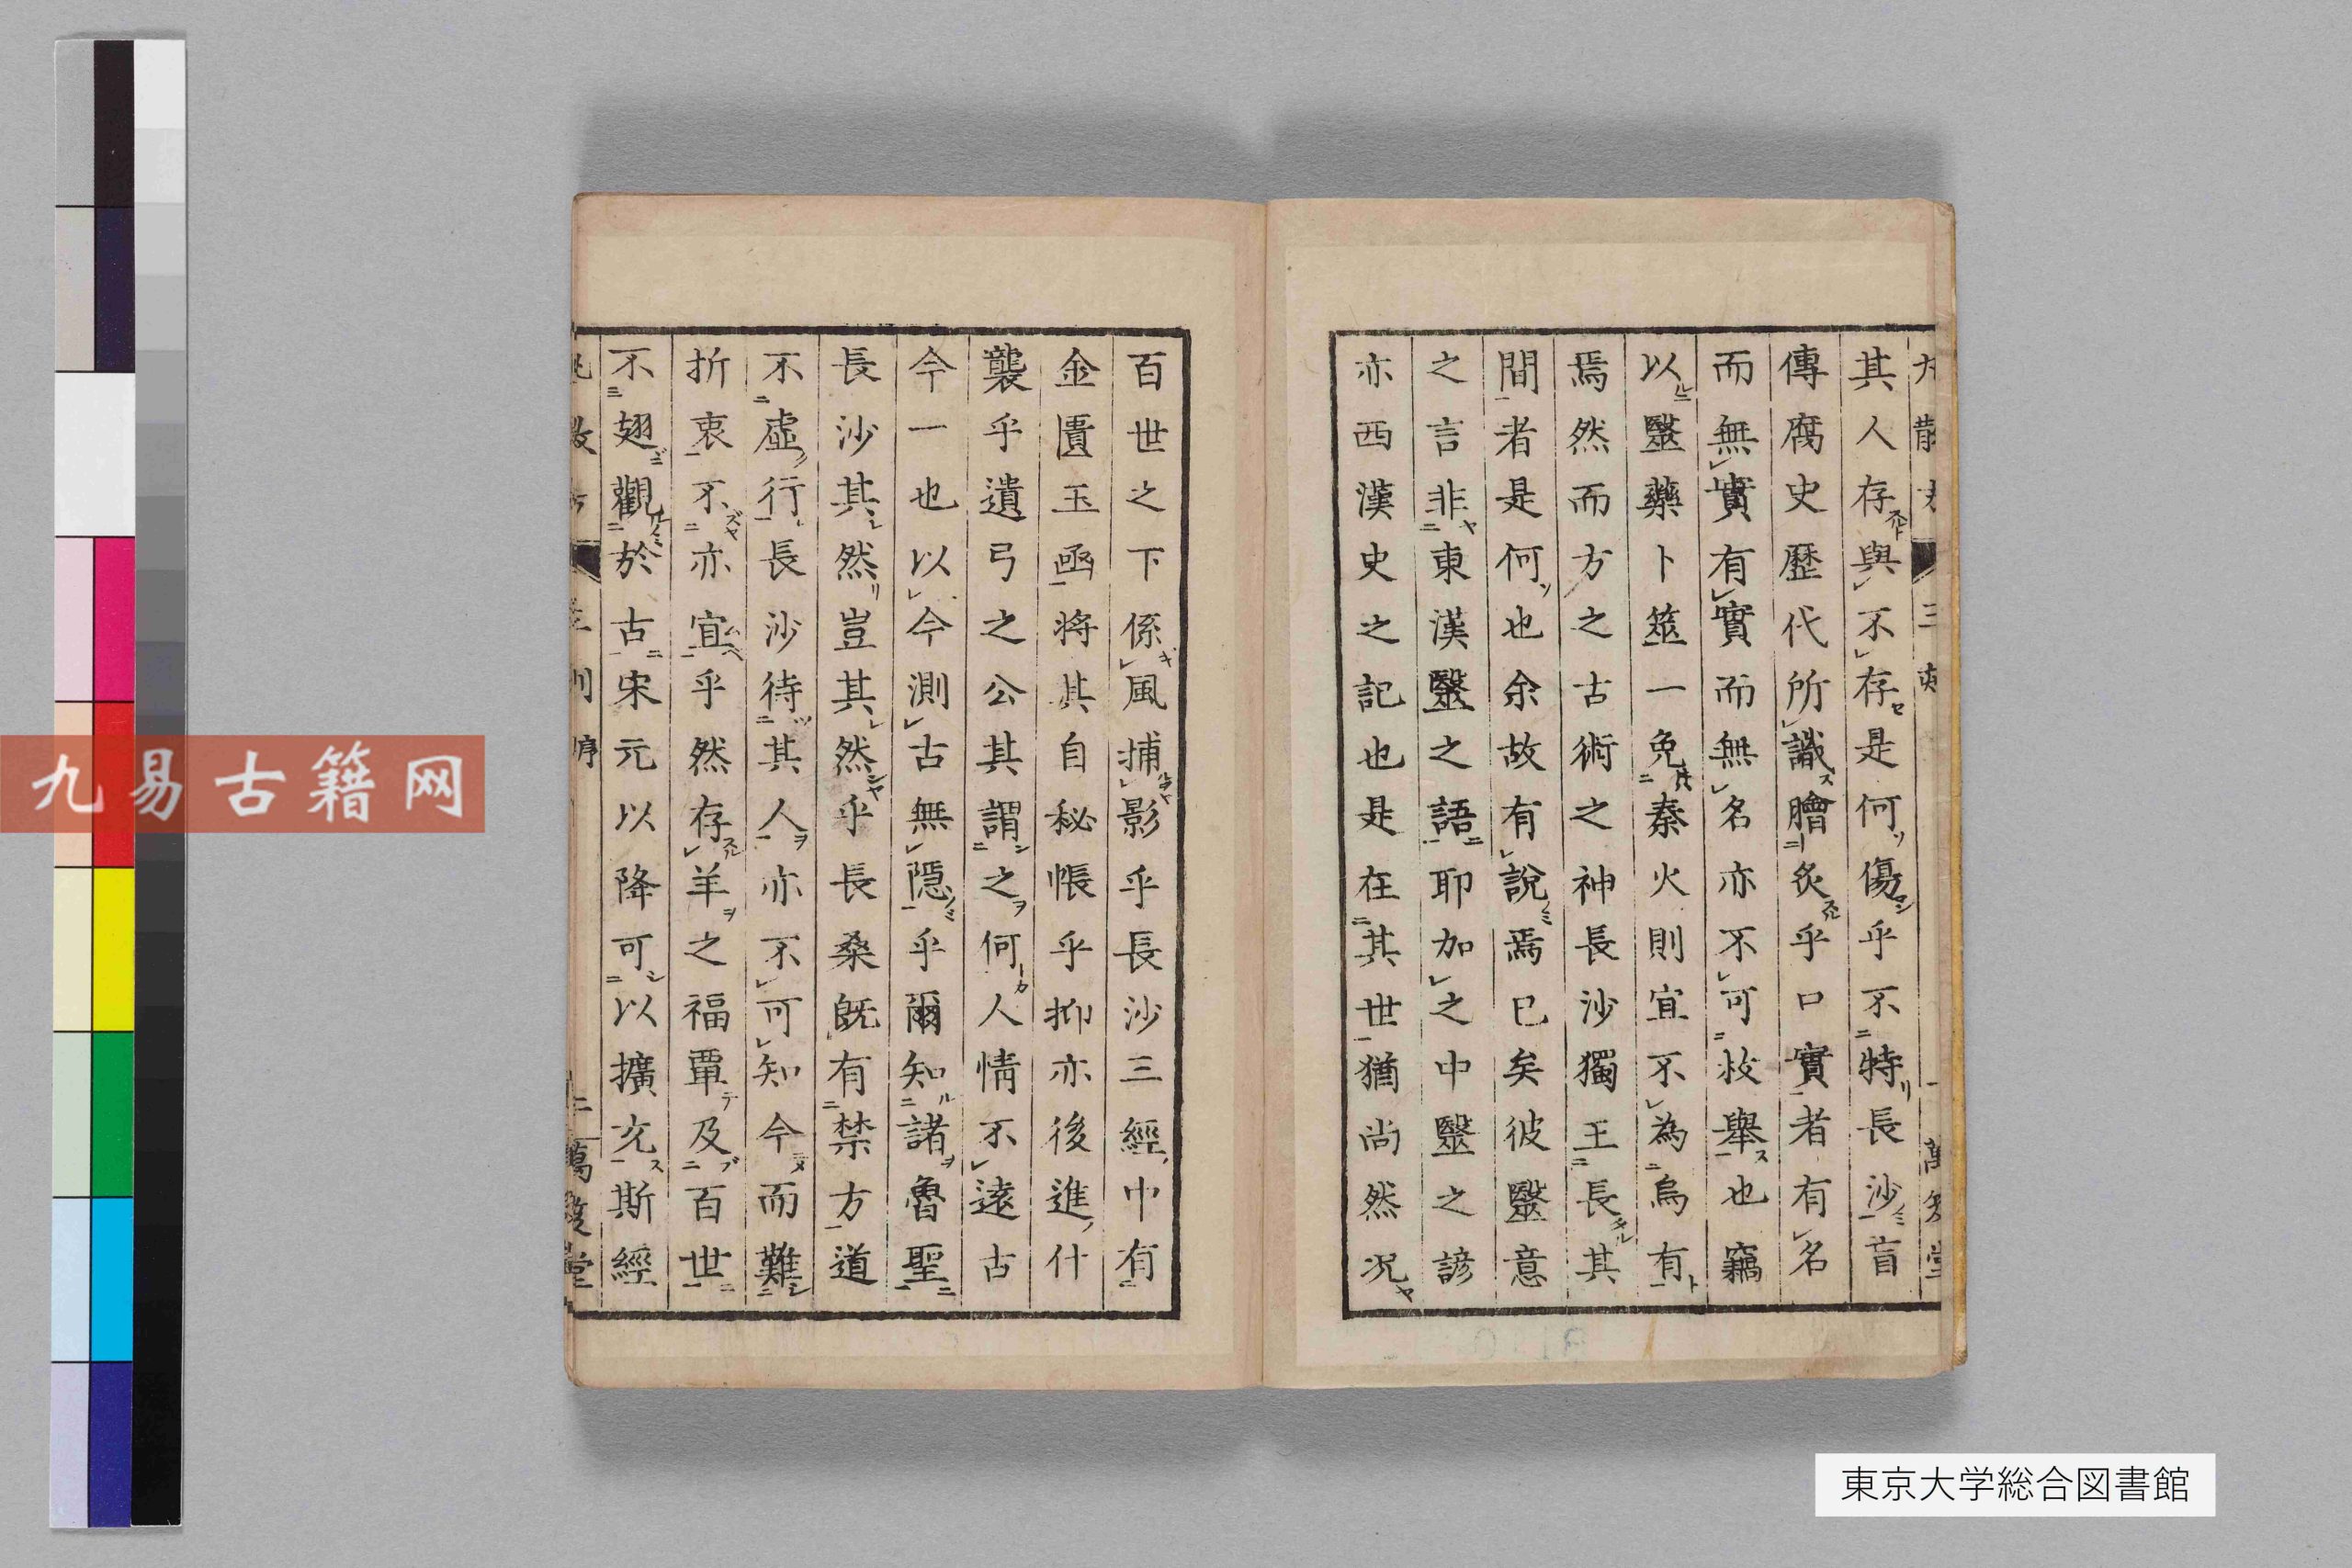 其人存與不存是何傷乎不特長沙盲
傳腐史歷代所識膾炙乎口實者有名
而無實有實而無名亦不可枚舉也竊
以毉藥卜筮一免秦火則宜不為烏有
焉然而方之古術之神長沙獨王長其
間者是何也余故有說焉已矣彼毉意
之言非東漢毉之語耶加之中毉之諺
亦西漢史之記也是在其世猶尚然况
百世之下係風捕影乎長沙三經中有
金匱玉函將其自秘帳乎抑亦後進什
襲乎遺弓之公其謂之何人情不遠古
今一也以今測古無隱乎爾知諸魯聖
長沙其然豈其然乎長桑既有禁方道
不虛行長沙待其人亦不可知今而難
折衷不亦宜乎然存羊之福覃及百世
不翅觀於古宋元以降可以擴充斯經
九易古籍网
東京大学総合図書館